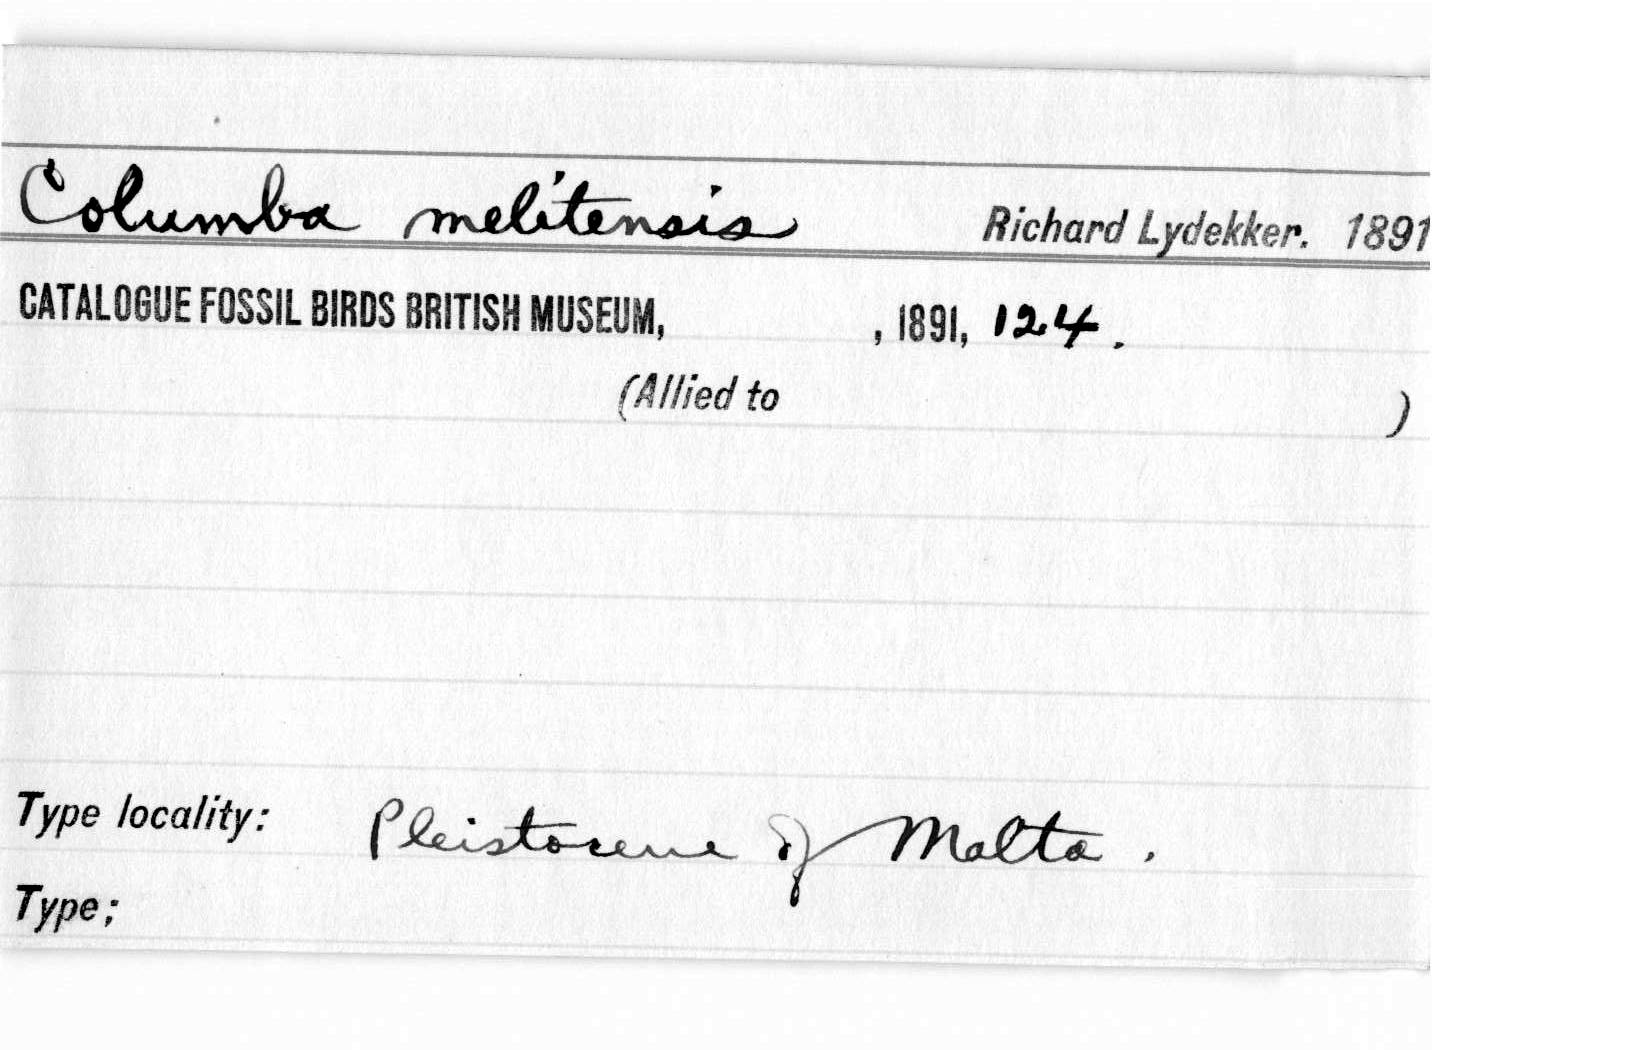 Columba melitensis Richard Lydekker. 1891
CATALOGUE FOSSIL BIRDS BRITISH MUSEUM, , 1891, 124.
(Allied to )
Type locality: Pleistocene of Malta.
Type;